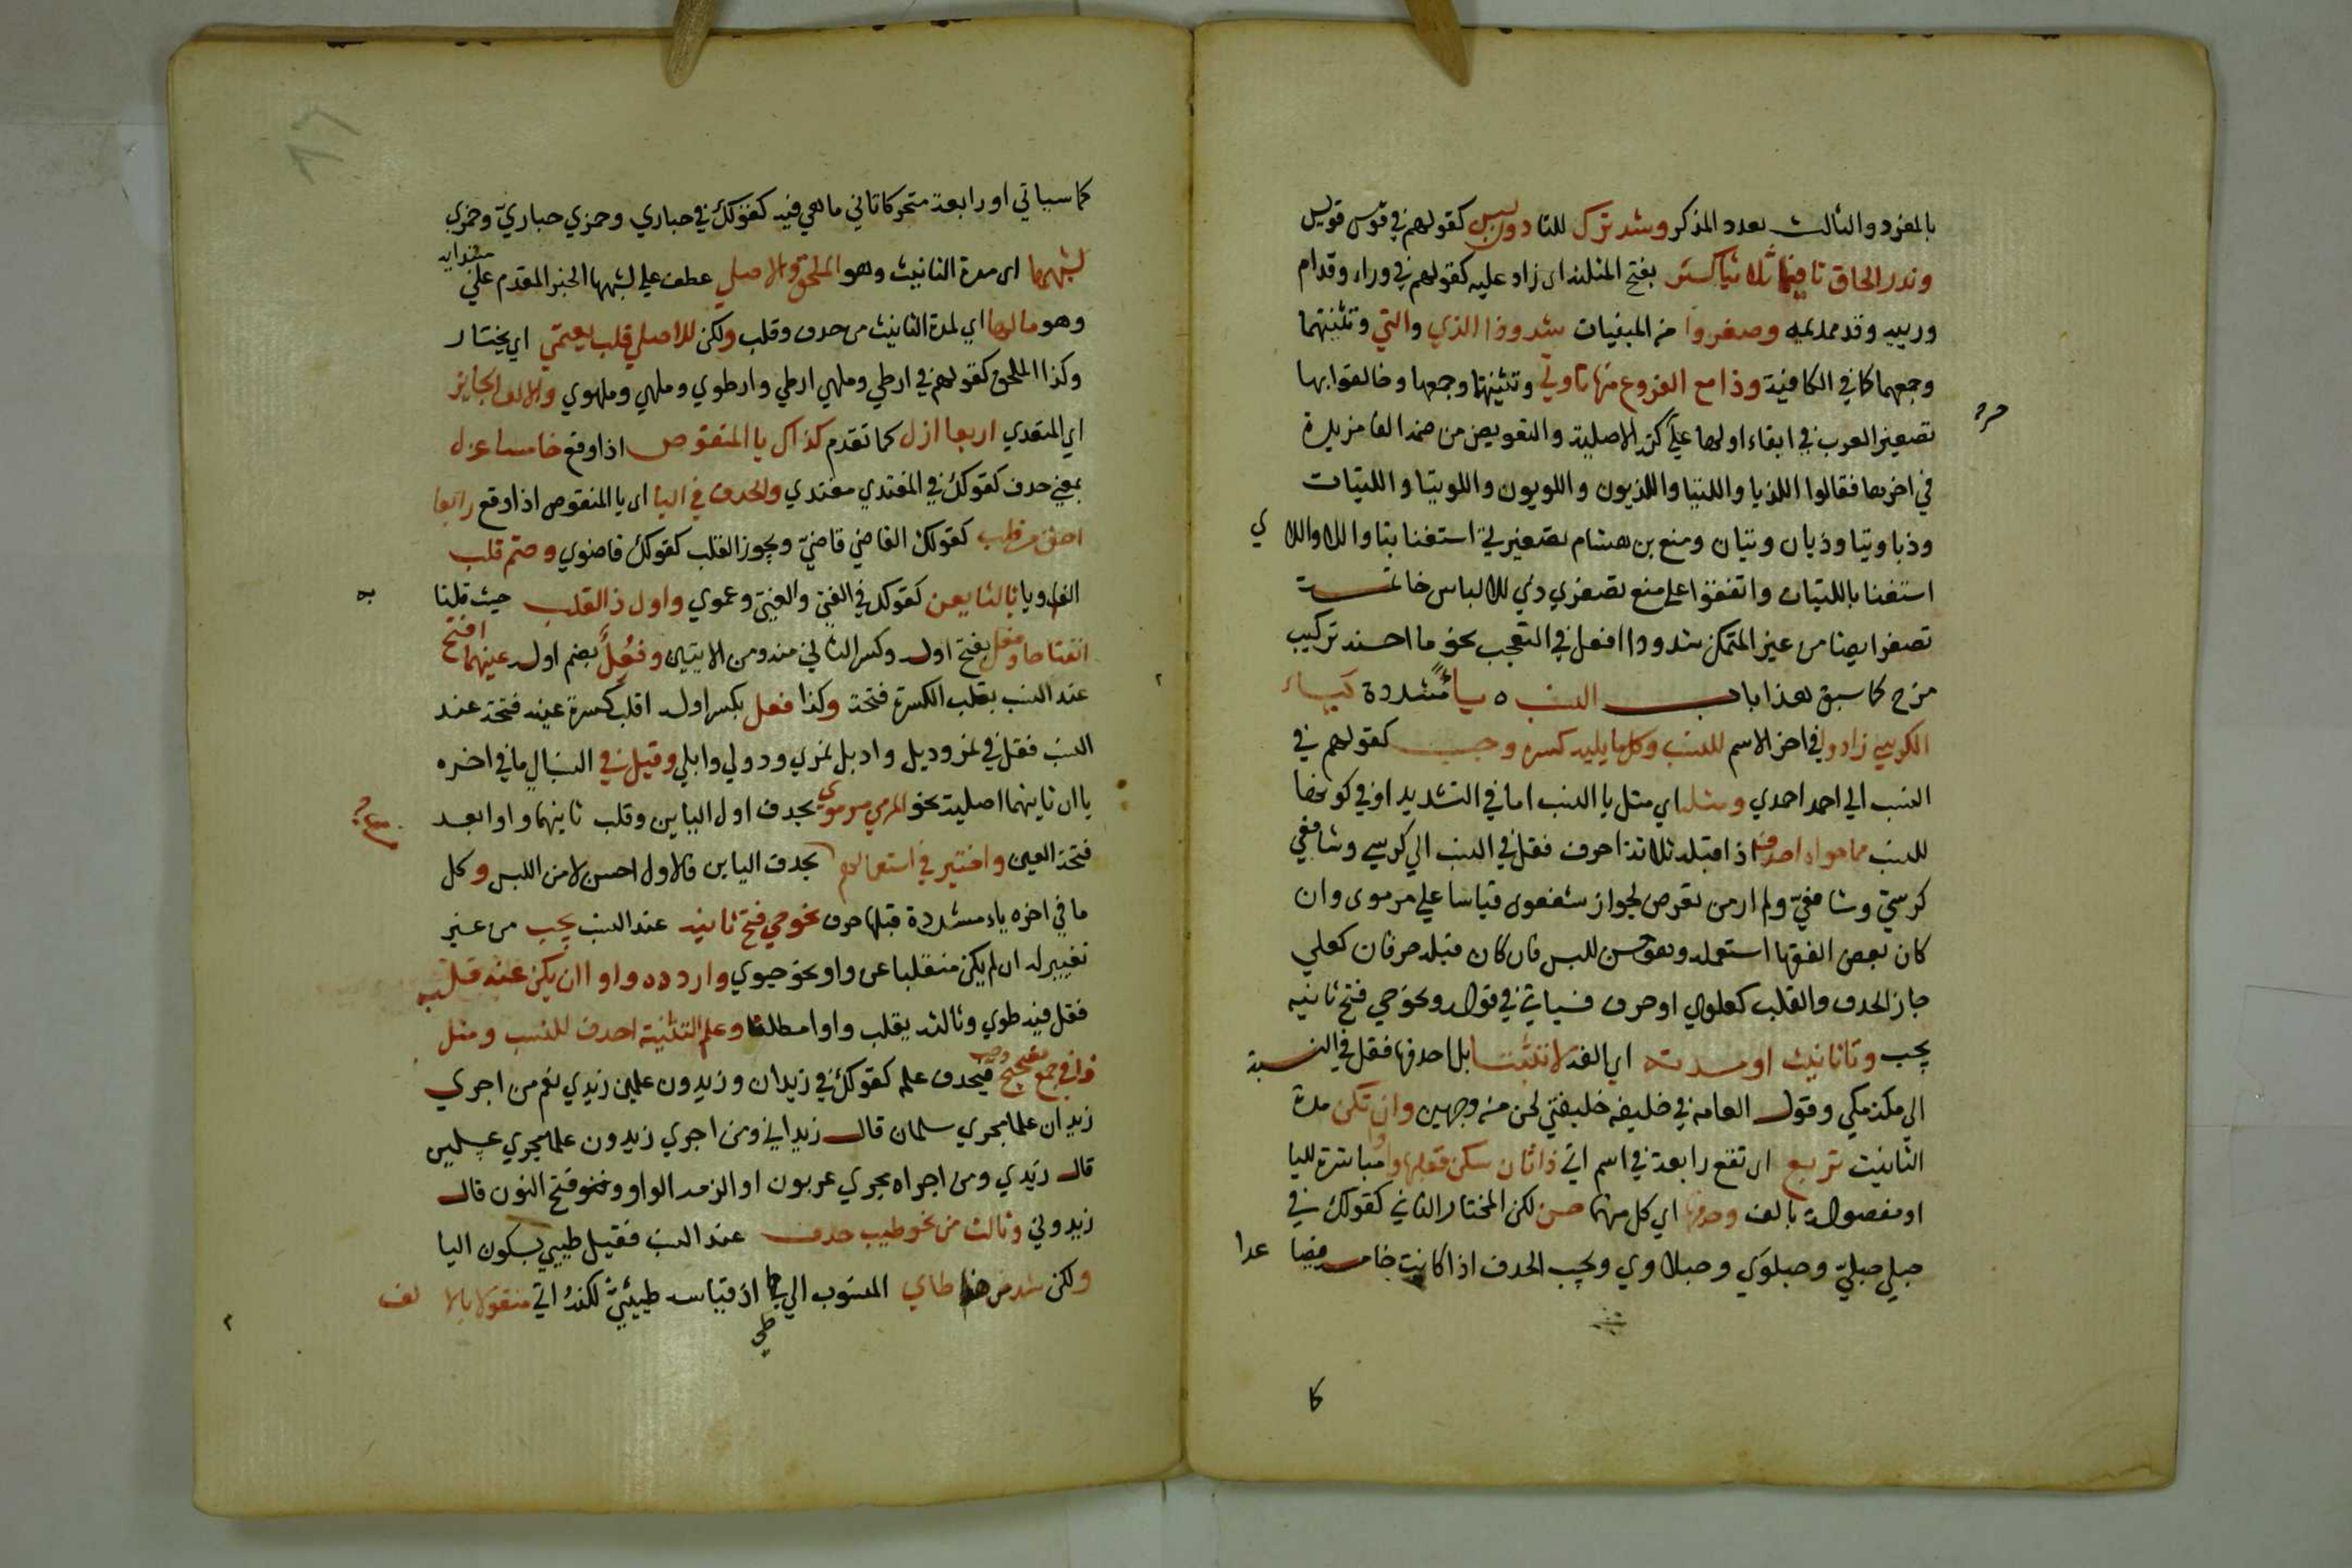 بالمفرد والثالث بعدد المذكر وشد ترك للتا دون لبس كقولهم في قوس قويس
وندر الحاق تا فيما ثلاثيا كثر بفتح المثلثة اى زاد عليه كقولهم في وراء وقدام
وربيه وقديديمه وصغروا من المبنيات شذوذا الذي والتي وتثنيتهما
وجمعهما كما في الكافية وذا مع الفروع منها تا وتي وتثنيتها وجمعها وخالفوا بها
تصغير المعرب في ابقاء اولها على حركته الاصلية والتعويض من ضمه الفا مزيدة
في اخرها فقالوا اللذيا واللتيا واللذيون واللويون واللويتا واللتيات
وذيا وتيا وذيان وتيان ومنع بن هشام تصغير تي استغنا بتا واللا واللا ي
استغنا باللتيات واتفقوا على منع تصغر ذي للالباس خاتمـــة
تصغر ايضا من غير المتمكن شذوذا افعل في التعجب نحو ما احسنه وتركيب
مزج كما سبق هذا باب النسب ه ياء مشددة كياء
الكرسي زادوا في اخر الاسم للنسب وكل ما يليه كسره وجب كقولهم في
النسب الى احمد احمدي ومثله اي مثل يا النسب اما في التشديد او في كونها
للنسب مما حواه احذف اذا قبله ثلاثة احرف فقل في النسب الي كرسي وشافعي
كرسيّ وشافعيّ ولم ار من تعرض لجواز شفعوي قياسا على مرموى وان
كان بعض الفقها استعمله وهو حسن للبس فان كان قبله حرفان كعلي
جاز الحذف والقلب كعلوي او حرف فسياتي في قوله ونحو حي فتح ثانيه
يجب وتا تانيث او مدته اي الفه لا تثبتا بل احذفها فقل في النسبة
الي مكة مكي وقول العامه في خليفه خليفتي لحن من وجهين وان تكن مدة
التانيث تربع اى تقع رابعة في اسم اتى ذا ثان سكن فقلبها واوا مباشرة لليا
او مفصولة بالف وحذفها اي كل منهما حسن لكن المختار الثاني كقولك في
حبلي حبليّ وحبلوي وحبلاوي ويجب الحذف اذا كانت خامسة فصا عدا
كما
كما سياتي او رابعة متحركا ثاني ما هي فيه كقولك في حباري وجمزي حباريّ وجمزي
لشبهها اى مدة التانيث وهو الملحق والاصلي عطف علي لشبهها الخبر المقدم علي مبتدايه
وهو ما لها اي لمدة التانيث من حذف وقلب ولكن للاصلي قلب يعتمي اي يختار
وكذا الملحق كقولهم في ارطي وملهي ارطي وارطوي وملهي وملهوي والالف الجايز
اي المتعدي اربعا ازل كما تقدم كذاك يا المنقوص اذا وقع خامسا عزل
بمعني حذف كقولك في المعتدي معتدي والحذف في اليا اى يا المنقوص اذا وقع رابعا
احق من قلب كقولك القاضي قاضيّ ويجوز القلب كقولك قاضوي وحتم قلب
الف او يا ثالثا يعن كقولك في الفتى والعمي وعموي واول ذا القلب حيث قلنا به
انفتاحا وفعل بفتح اوله وكسر الثاني منه ومن الاتيين وفعل بضم اوله عينهما افتح
عند النسب بقلب الكسرة فتحة وكذا فعل بكسر اوله اقلب كسرة عينه فتحة عند
النسب فقل في نمر وديل وادبل نمري ودولي وابلي وقيل في النسب الى ما في اخره
يا ان ثانيهما اصلية نحو المرمي مرموي بحذف اول اليائين وقلب ثانيهما واوا بعد
فتحة العين واختير في استعمالهم بحذف الياين فالاول احسن لامن اللبس وكل
ما في اخره ياء مشددة قبلها حرف نحو حي فتح ثانيه عند النسب يجب من غير
تغيير له ان لم يكن منقلبا عن واو نحو حيوي واردده واوا ان يكن عنه قلب
فقل فيه طوي وثالثه يقلب واوا مطلقا وعلم التثنية احذف للنسب ومثل
ذا في جمع تصحيح وجب فيحذف علمه كقولك في زيدان وزيدون علمين زيدي نعم من اجري
زيدان علما مجري سلمان قال زيداني ومن اجري زيدون علما مجري غسلين
قال زيدي ومن اجراه مجري عربون او الزمه الواو وفتح النون قال
زيدوني وثالث من نحو طيب حذف عند النسب فقيل طيبي بسكون اليا
ولكن شذ من هذا طاي المنسوب الي طي اذ قياسه طييئيّ لكنه اتي منقولا بالا لف